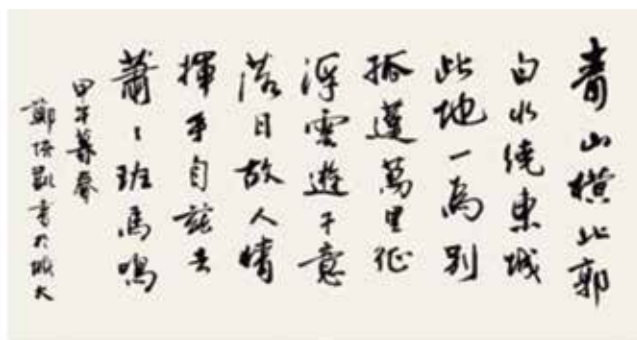 青山橫北郭
白水繞東城
此地一為別
孤蓬萬里征
浮雲遊子意
落日故人情
揮手自茲去
蕭〻班馬鳴
甲午暮春
鄭培凱書於城大